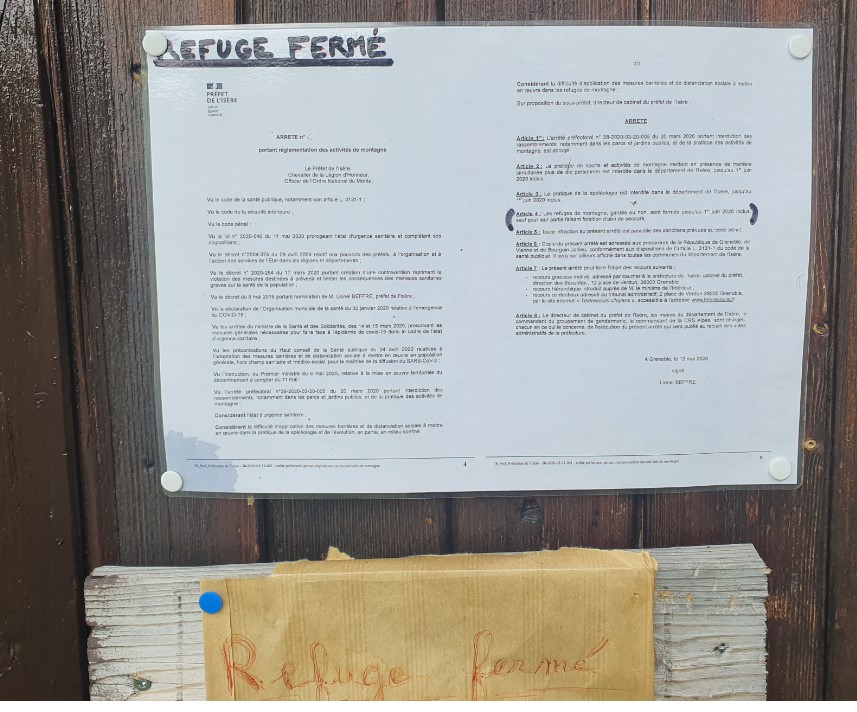 REFUGE FERMÉ
PRÉFET
DE L'ISÈRE
Liberté
Égalité
Fraternité
ARRETE n°
portant réglementation des activités de montagne
Le Préfet de l'Isère,
Chevalier de la Légion d'Honneur,
Officier de l'Ordre National du Mérite,
Vu le code de la santé publique, notamment son article L. 3131-1 ;
Vu le code de la sécurité intérieure ;
Vu le code pénal ;
Vu la loi n° 2020-546 du 11 mai 2020 prorogeant l'état d'urgence sanitaire et complétant ses
dispositions ;
Vu le décret n°2004-374 du 29 avril 2004 relatif aux pouvoirs des préfets, à l'organisation et à
l'action des services de l'État dans les régions et départements ;
Vu le décret n° 2020-264 du 17 mars 2020 portant création d'une contravention réprimant la
violation des mesures destinées à prévenir et limiter les conséquences des menaces sanitaires
graves sur la santé de la population ;
Vu le décret du 6 mai 2016 portant nomination de M. Lionel BEFFRE, préfet de l'Isère ;
Vu la déclaration de l'Organisation mondiale de la santé du 30 janvier 2020 relative à l'émergence
du COVID-19 ;
Vu les arrêtés du ministre de la Santé et des Solidarités, des 14 et 15 mars 2020, prescrivant les
mesures générales nécessaires pour faire face à l'épidémie de covid-19 dans le cadre de l'état
d'urgence sanitaire ;
Vu les préconisations du Haut conseil de la Santé publique du 24 avril 2020 relatives à
l'adaptation des mesures barrières et de distanciation sociale à mettre en œuvre en population
générale, hors champ sanitaire et médico-social, pour la maîtrise de la diffusion du SARS-CoV-2 ;
Vu l'instruction, du Premier ministre du 6 mai 2020, relative à la mise en œuvre territoriale du
déconfinement à compter du 11 mai ;
Vu l'arrêté préfectoral n°38-2020-03-20-005 du 20 mars 2020 portant interdiction des
rassemblements, notamment dans les parcs et jardins publics, et de la pratique des activités de
montagne ;
Considérant l'état d'urgence sanitaire ;
Considérant la difficulté d'application des mesures barrières et de distanciation sociale à mettre
en œuvre dans la pratique de la spéléologie et de l'évolution, en partie, en milieu confiné
4
2/2
Considérant la difficulté d'application des mesures barrières et de distanciation sociale à mettre
en œuvre dans les refuges de montagne ;
Sur proposition du sous-préfet, directeur de cabinet du préfet de l'Isère ;
ARRETE
Article 1er : L'arrêté préfectoral n° 38-2020-03-20-005 du 20 mars 2020 portant interdiction des
rassemblements, notamment dans les parcs et jardins publics, et de la pratique des activités de
montagne, est abrogé
Article 2 : La pratique de sports et activités de montagne mettant en présence de manière
simultanée plus de dix personnes est interdite dans le département de l'Isère, jusqu'au 1er juin
2020 inclus.
Article 3 : La pratique de la spéléologie est interdite dans le département de l'Isère, jusqu'au
1er juin 2020 inclus.
Article 4 : Les refuges de montagne, gardés ou non, sont fermés jusqu'au 1er juin 2020 inclus,
sauf pour leur partie faisant fonction d'abri de secours.
Article 5 : Toute infraction au présent arrêté est passible des sanctions prévues au code pénal.
Article 6 : Copie du présent arrêté est adressée aux procureurs de la République de Grenoble, de
Vienne et de Bourgoin-Jallieu, conformément aux dispositions de l'article L. 3131-1 du code de la
santé publique. Il sera par ailleurs affiché dans toutes les communes du département de l'Isère.
Article 7 : Le présent arrêté peut faire l'objet des recours suivants :
• recours gracieux motivé, adressé par courrier à la préfecture de l'Isère, cabinet du préfet,
direction des Sécurités, 12 place de Verdun, 38000 Grenoble
• recours hiérarchique introduit auprès de M. le ministre de l'Intérieur,
• recours contentieux adressé au tribunal administratif, 2 place de Verdun 38000 Grenoble,
par le site internet « Télérecours citoyens », accessible à l'adresse www.telerecours.fr
Article 8 : Le directeur de cabinet du préfet de l'Isère, les maires du département de l'Isère, le
commandant du groupement de gendarmerie, le commandant de la CRS Alpes, sont chargés,
chacun en ce qui le concerne, de l'exécution du présent arrêté qui sera publié au recueil des actes
administratifs de la préfecture.
A Grenoble, le 12 mai 2020
signé
Lionel BEFFRE
5
Refuge fermé